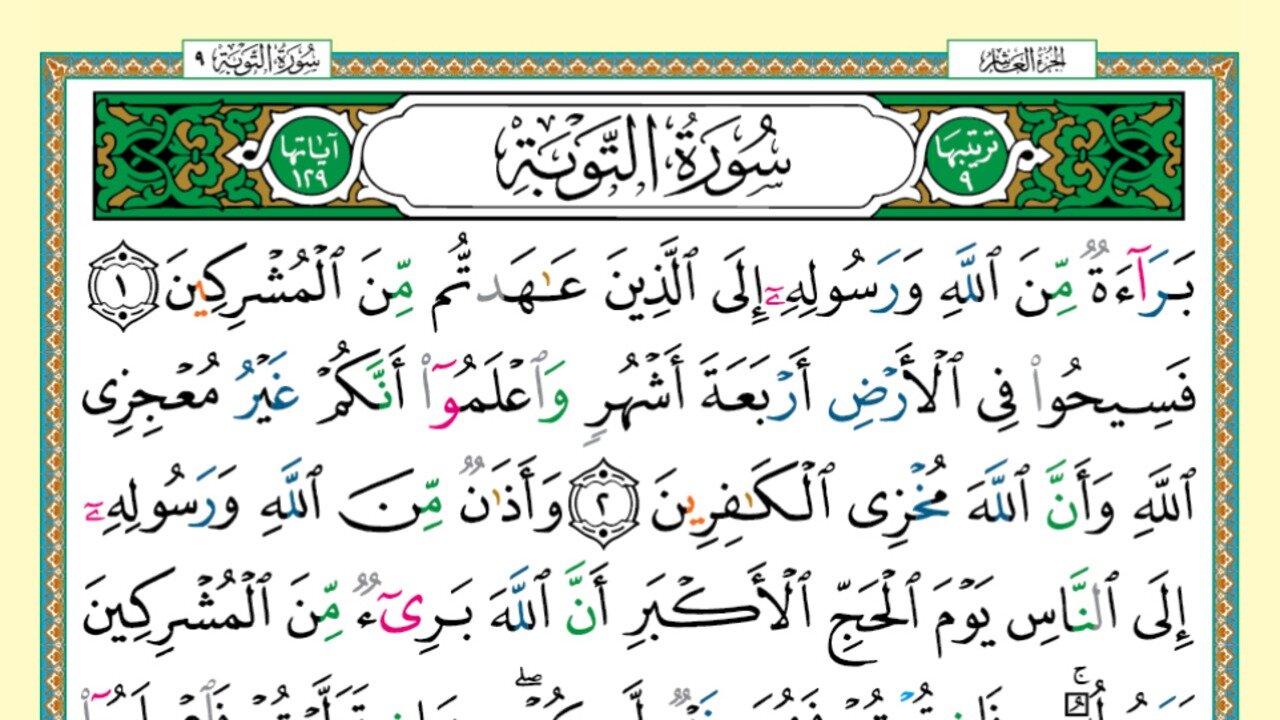 الجزء العاشر
سورة التوبة ٩
ترتيبها ٩
سُورَةُ التَّوْبَةِ
آياتها ١٢٩
بَرَآءَةٌ مِّنَ ٱللَّهِ وَرَسُولِهِۦٓ إِلَى ٱلَّذِينَ عَـٰهَدتُّم مِّنَ ٱلْمُشْرِكِينَ ١
فَسِيحُوا۟ فِى ٱلْأَرْضِ أَرْبَعَةَ أَشْهُرٍ وَٱعْلَمُوٓا۟ أَنَّكُمْ غَيْرُ مُعْجِزِى
ٱللَّهِ وَأَنَّ ٱللَّهَ مُخْزِى ٱلْكَـٰفِرِينَ ٢ وَأَذَٰنٌ مِّنَ ٱللَّهِ وَرَسُولِهِۦٓ
إِلَى ٱلنَّاسِ يَوْمَ ٱلْحَجِّ ٱلْأَكْبَرِ أَنَّ ٱللَّهَ بَرِىٓءٌ مِّنَ ٱلْمُشْرِكِينَ